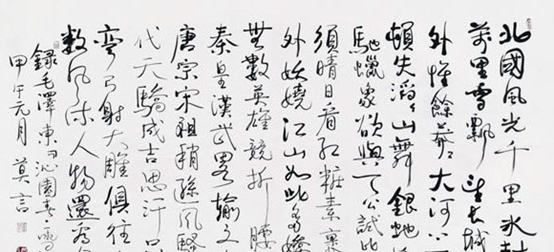 北國風光千里冰封
萬里雪飄望長城
外惟餘莽莽大河
頓失滔滔山舞銀蛇
馳蠟象欲與天公試比
須晴日看紅粧素裹
外妖嬈江山如此多嬌
無數英雄競折腰
秦皇漢武畧輸文
唐宗宋祖稍遜風騷
代天驕成吉思汗只
彎弓射大雕俱往
数風流人物還看
錄毛澤東词沁園春雪
甲午元月 莫言